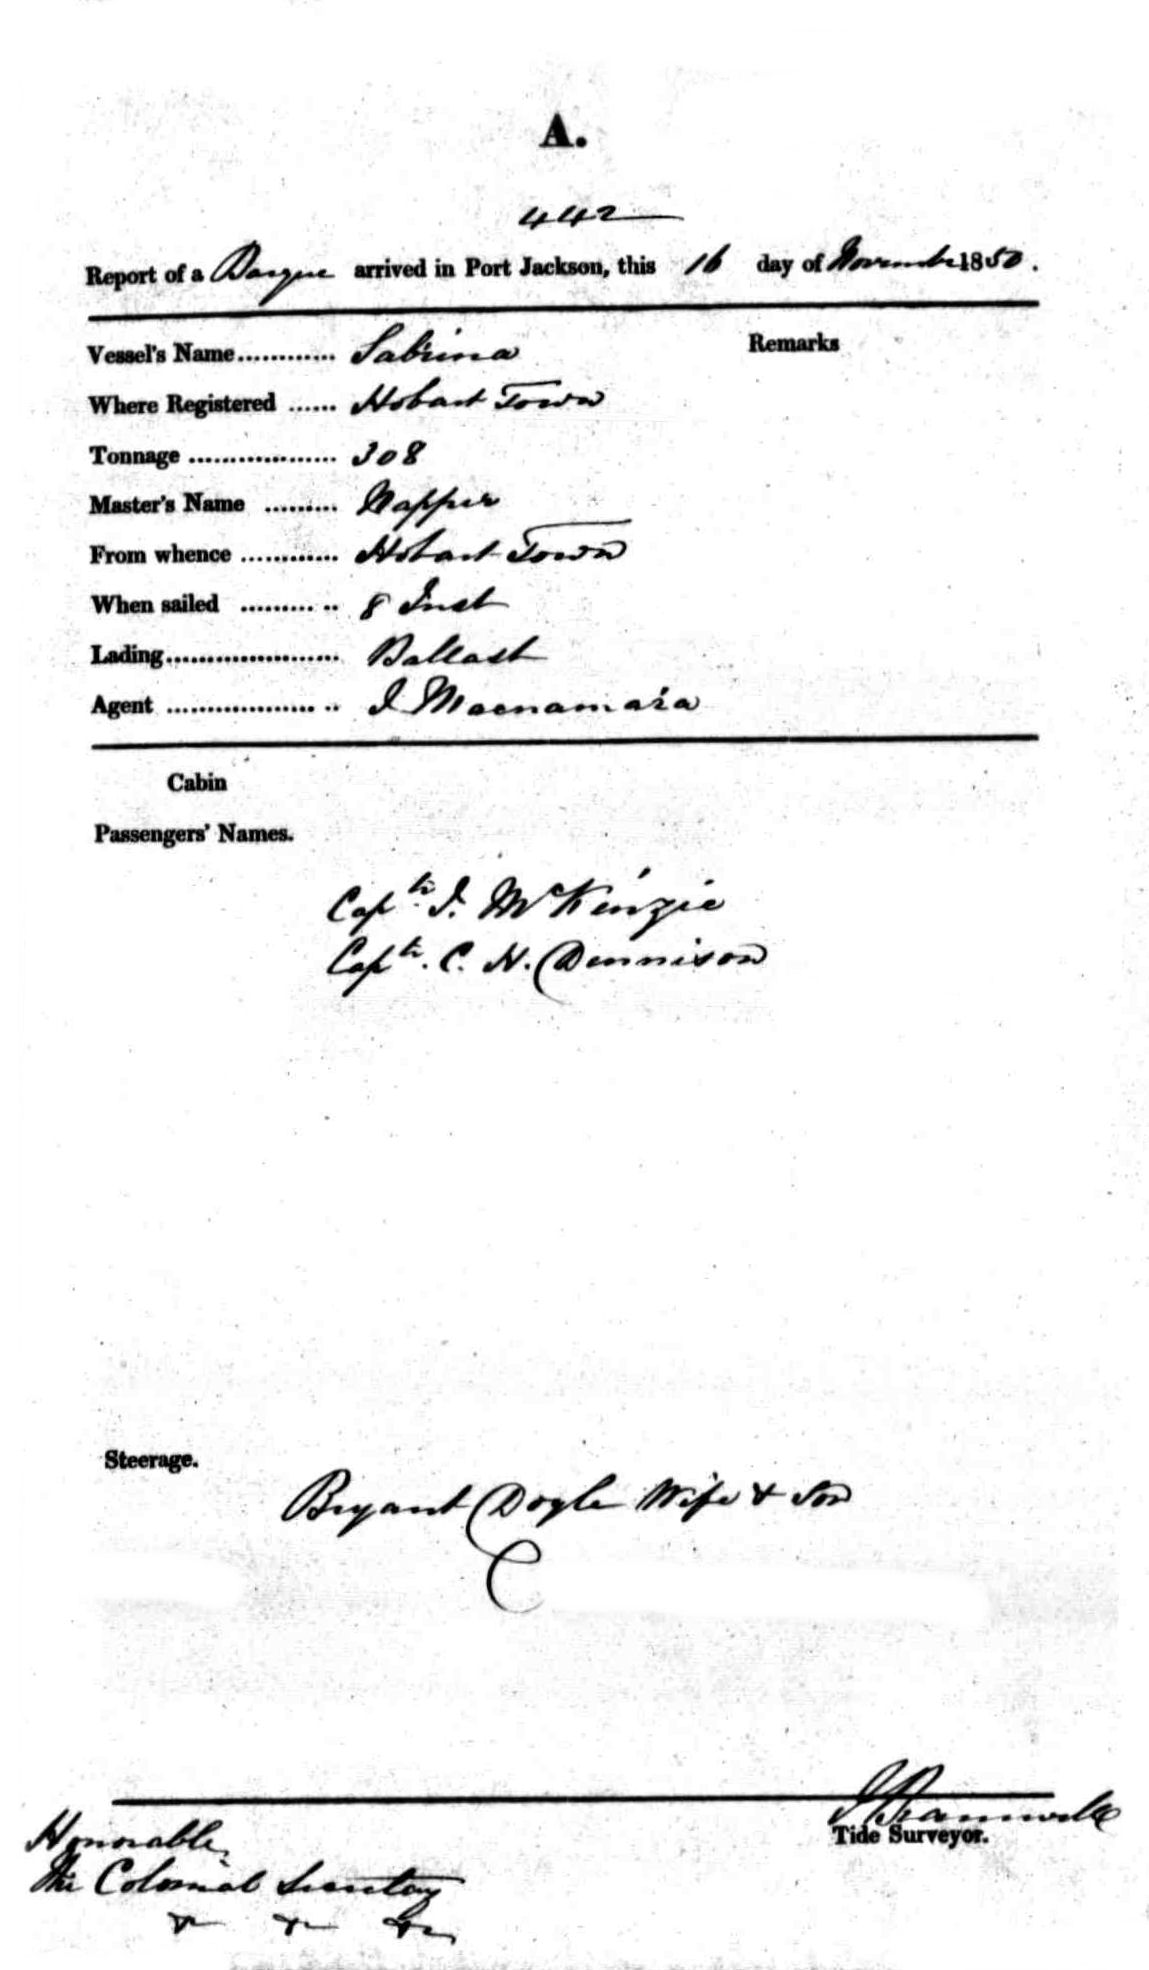 A.
442
Report of a Barque arrived in Port Jackson, this 16 day of November 1850.
Vessel's Name............ Sabrina
Remarks
Where Registered ...... Hobart Town
Tonnage .................. 308
Master's Name ......... Napper
From whence ............ Hobart Town
When sailed ......... .. 8 Inst
Lading..................... Ballast
Agent .................. .. J Macnamara
Cabin
Passengers' Names.
Captn. J. McKenzie
Captn. C. H. Dennison
Steerage.
Bryant Doyle Wife & Son
J Bramwell
Tide Surveyor.
Honorable
The Colonial Secretary
&c &c &c